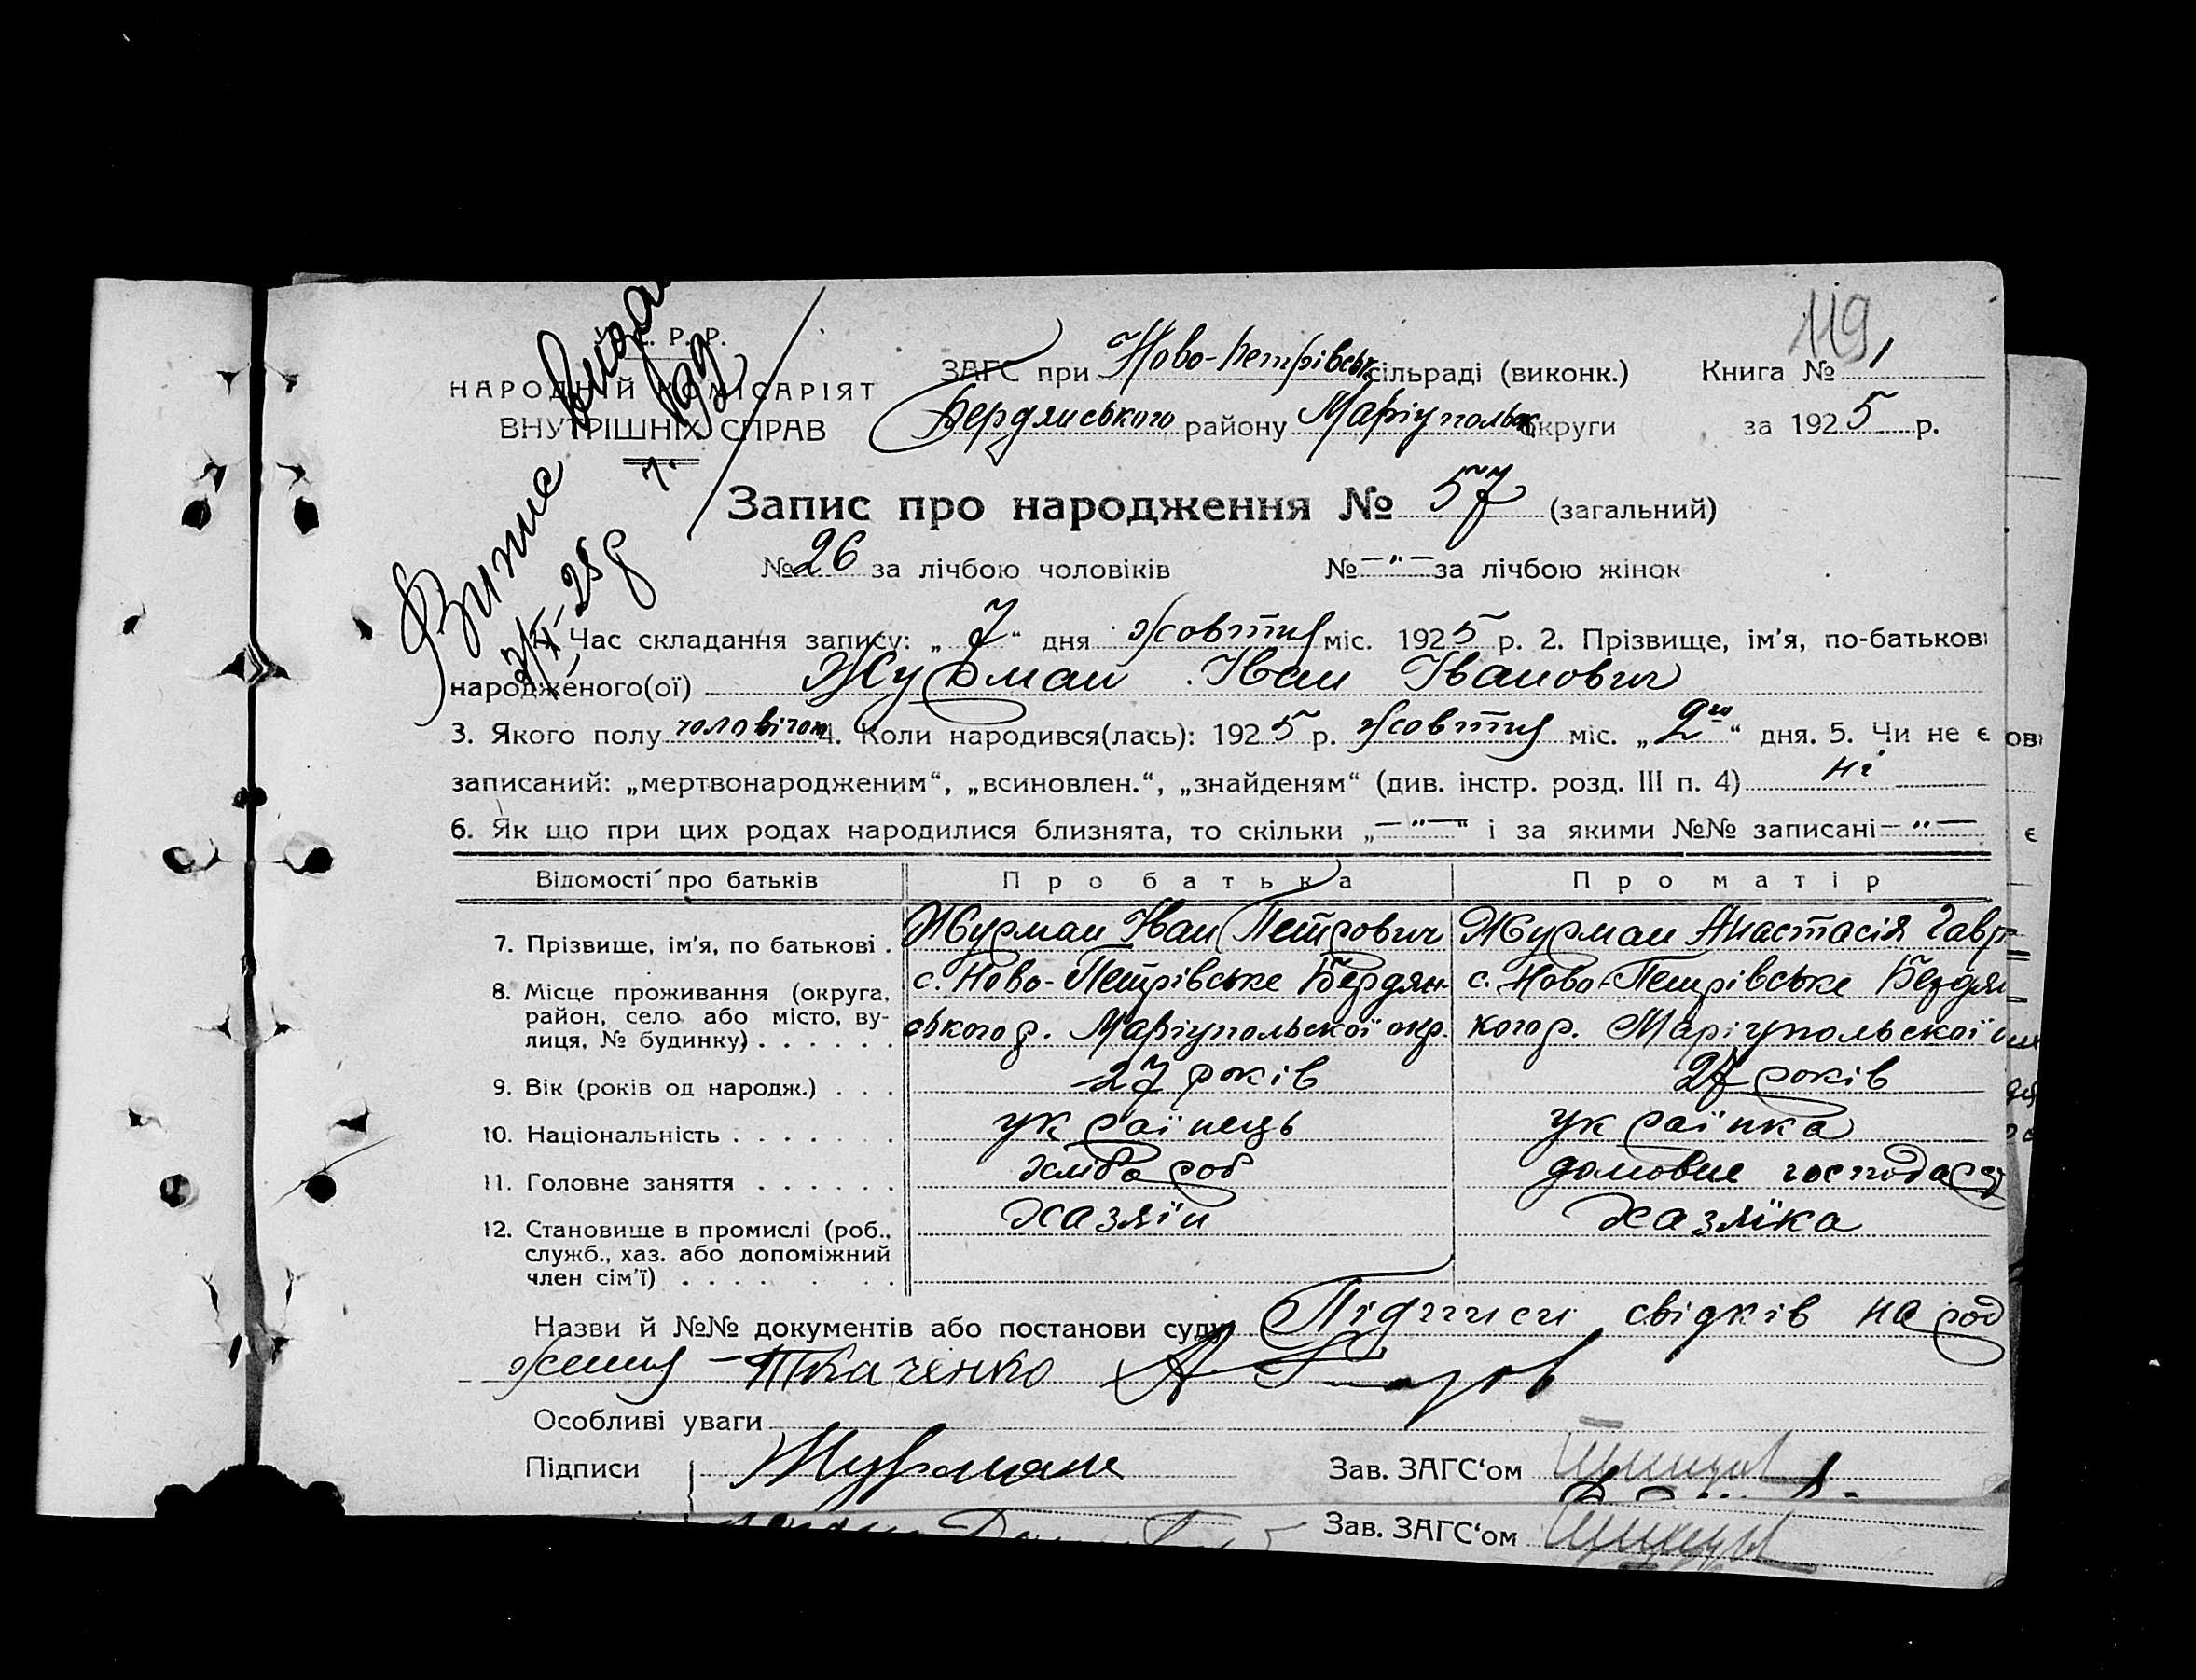 119
У. С. Р. Р.
НАРОДНІЙ КОМІСАРІЯТ
ВНУТРІШНІХ СПРАВ
ЗАГС при Ново-Петрівськ сільраді (виконк.) Книга № 1
Бердянського району Маріупольск округи за 1925 р.
Запис про народження № 57 (загальний)
№ 26 за лічбою чоловіків № —"— за лічбою жінок
Час складання запису: „7“ дня жовтня міс. 1925 р. 2. Прізвище, ім'я, по-батькові
народженого(ої) Журман Іван Іванович
3. Якого полу чоловічого 4. Коли народився(лась): 1925 р. жовтня міс. „2го“ дня. 5. Чи не є
записаний: „мертвонародженим“, „всиновлен.“, „знайденям“ (див. інстр. розд. III п. 4) ні
6. Як що при цих родах народилися близнята, то скільки „—"—“ і за якими №№ записані —"—
Відомості про батьків Про батька Про матір
7. Прізвище, ім'я, по батькові . Журман Іван Петрович Журман Анастасія Гавр
8. Місце проживання (округа, с. Ново-Петрівське Бердян- с. Ново-Петрівське Бердян
район, село або місто, ву- ського р. Маріупольської окр. кого р. Маріупольської
лиця, № будинку) . . . . . .
9. Вік (років од народж.) . . . 27 років 27 років
10. Національність . . . . . . . українець українка
11. Головне заняття . . . . . . хлібороб домовне господар
12. Становище в промислі (роб., хазяїн хазяїка
служб., хаз. або допоміжний
член сім'ї) . . . . . .
Назви й №№ документів або постанови суду Підписи свідків народ
ження – Ткаченко А
Особливі уваги
Підписи Журман Зав. ЗАГС'ом
Зав. ЗАГС'ом